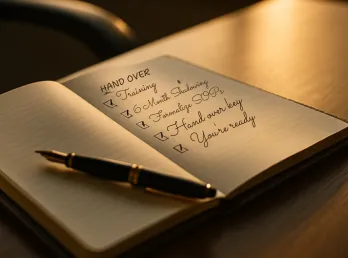 HAND OVER
☑ Training
☑ 6 Month Shadowing
☑ Formalize SOPs
☑ Hand over key
☑ You're ready